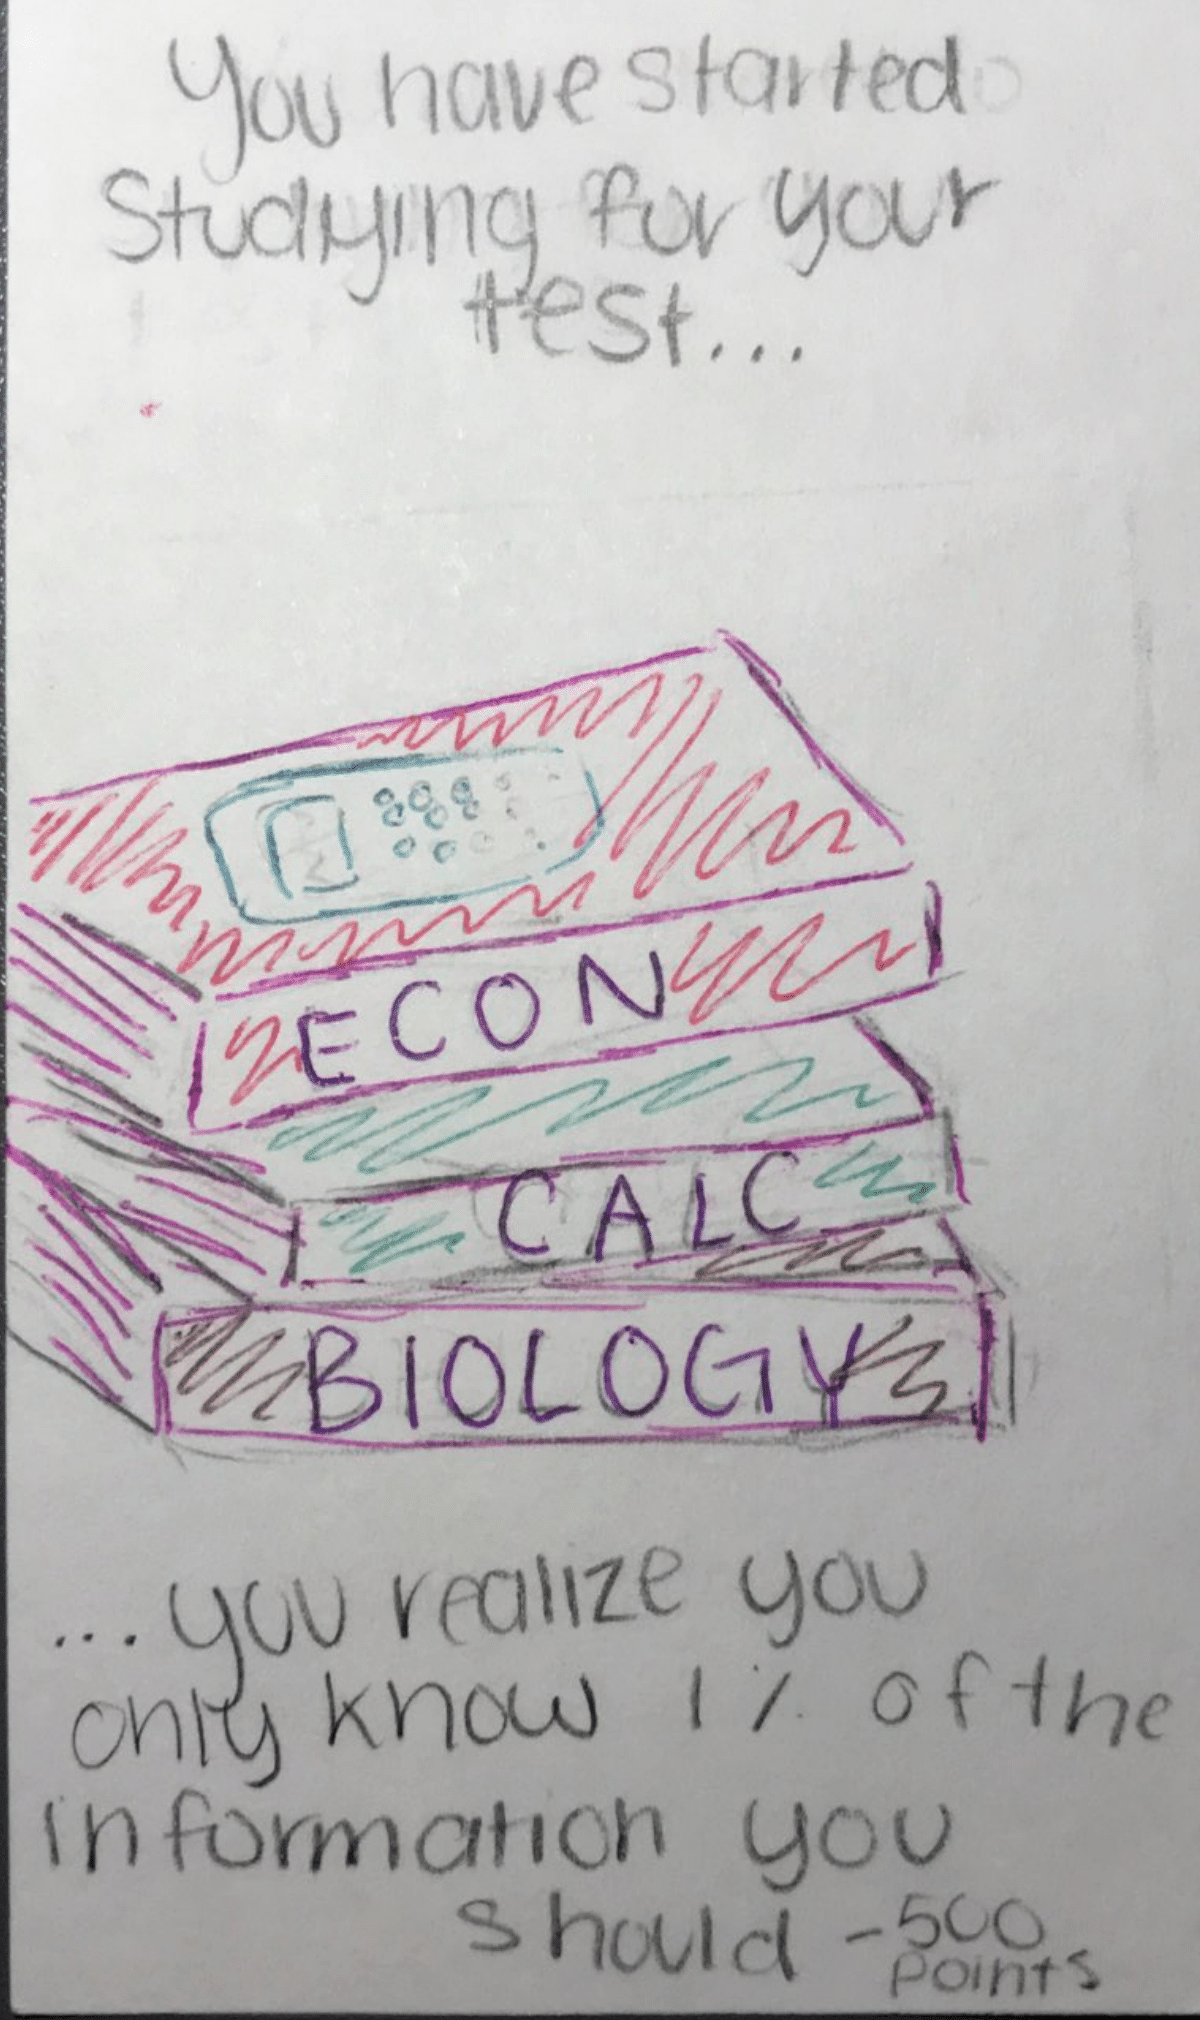 You have started
Studying for your
test...
ECON
CALC
BIOLOGY
...you realize you
only know 1% of the
information you
should -500
Points